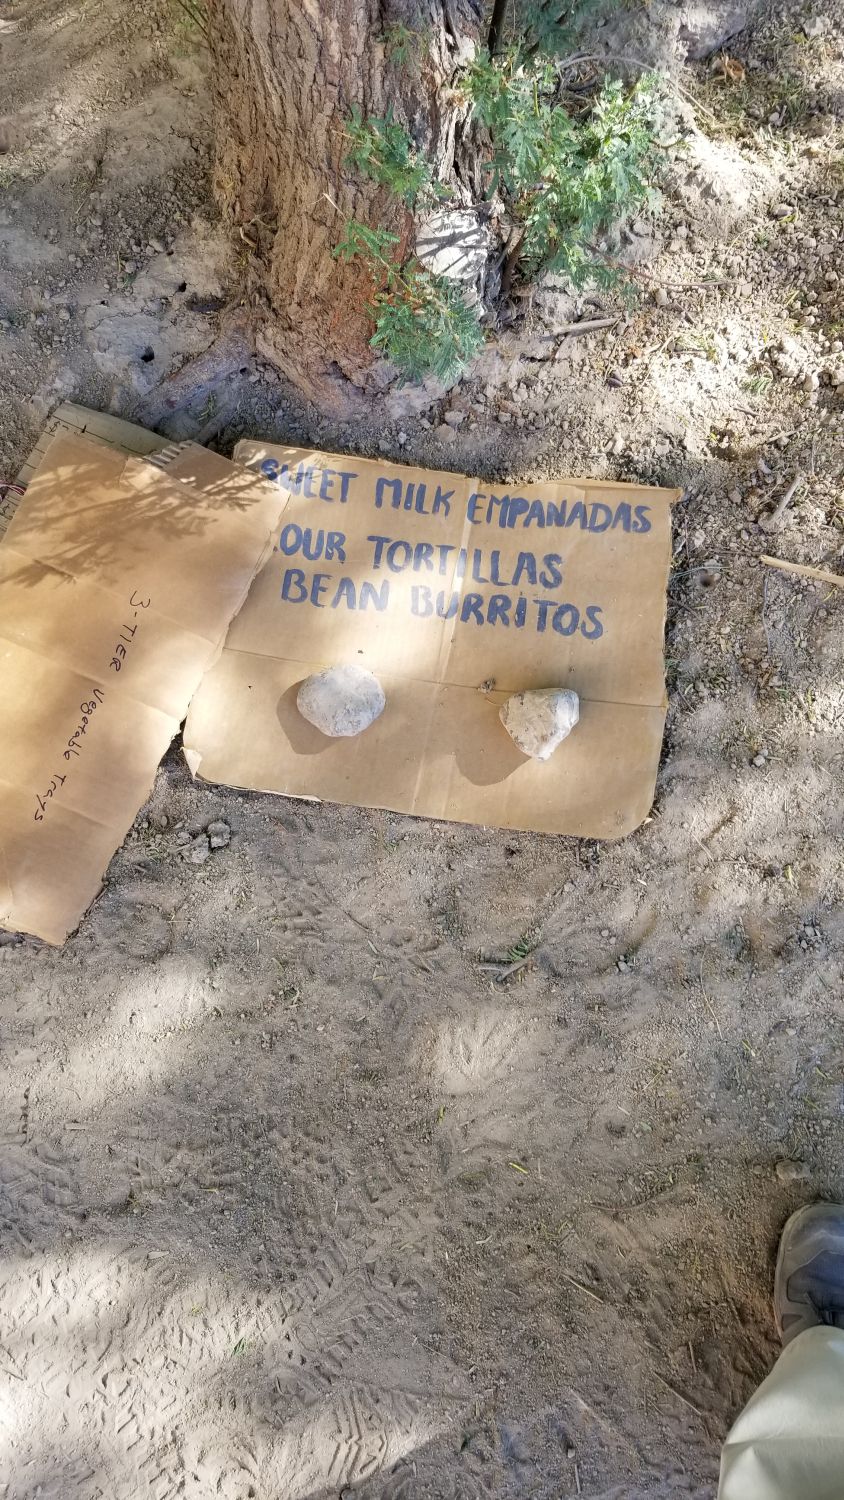 SWEET MILK EMPANADAS
OUR TORTILLAS
BEAN BURRITOS
3-TIER Vegetable Trays